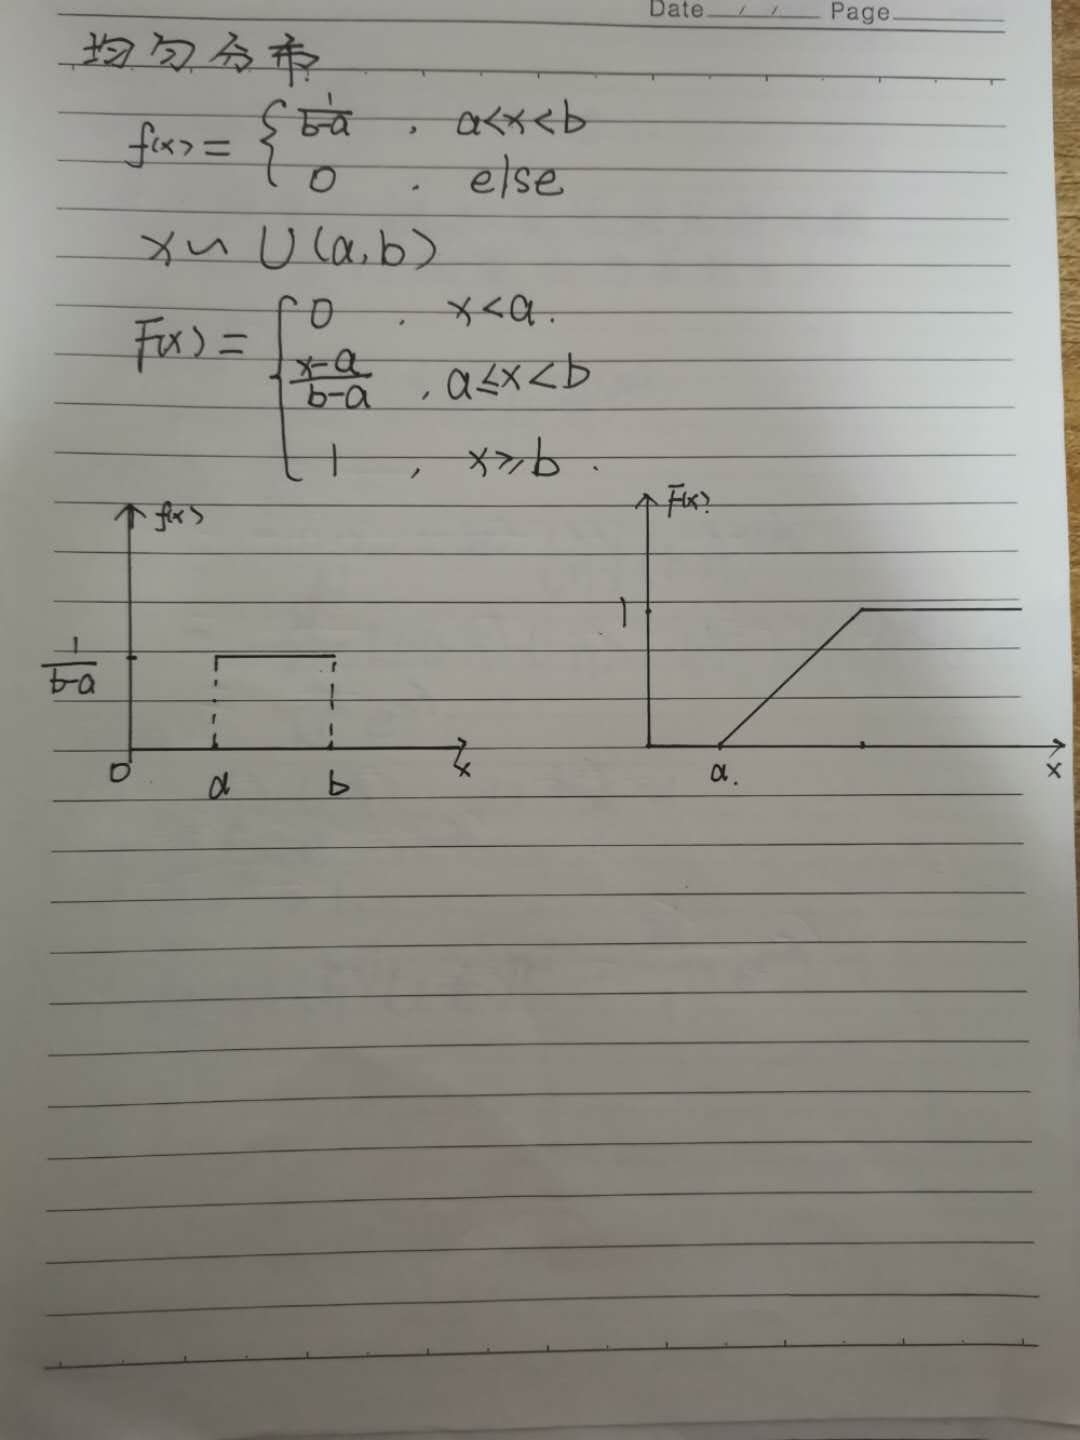 Date / / Page
均匀分布
f(x) = { 1/(b-a) , a<x<b
0 , else
x ~ U(a,b)
F(x) = { 0 , x<a.
(x-a)/(b-a) , a≤x<b
1 , x≥b.
f(x)
1/(b-a)
0 a b x
F(x)
1
a. x